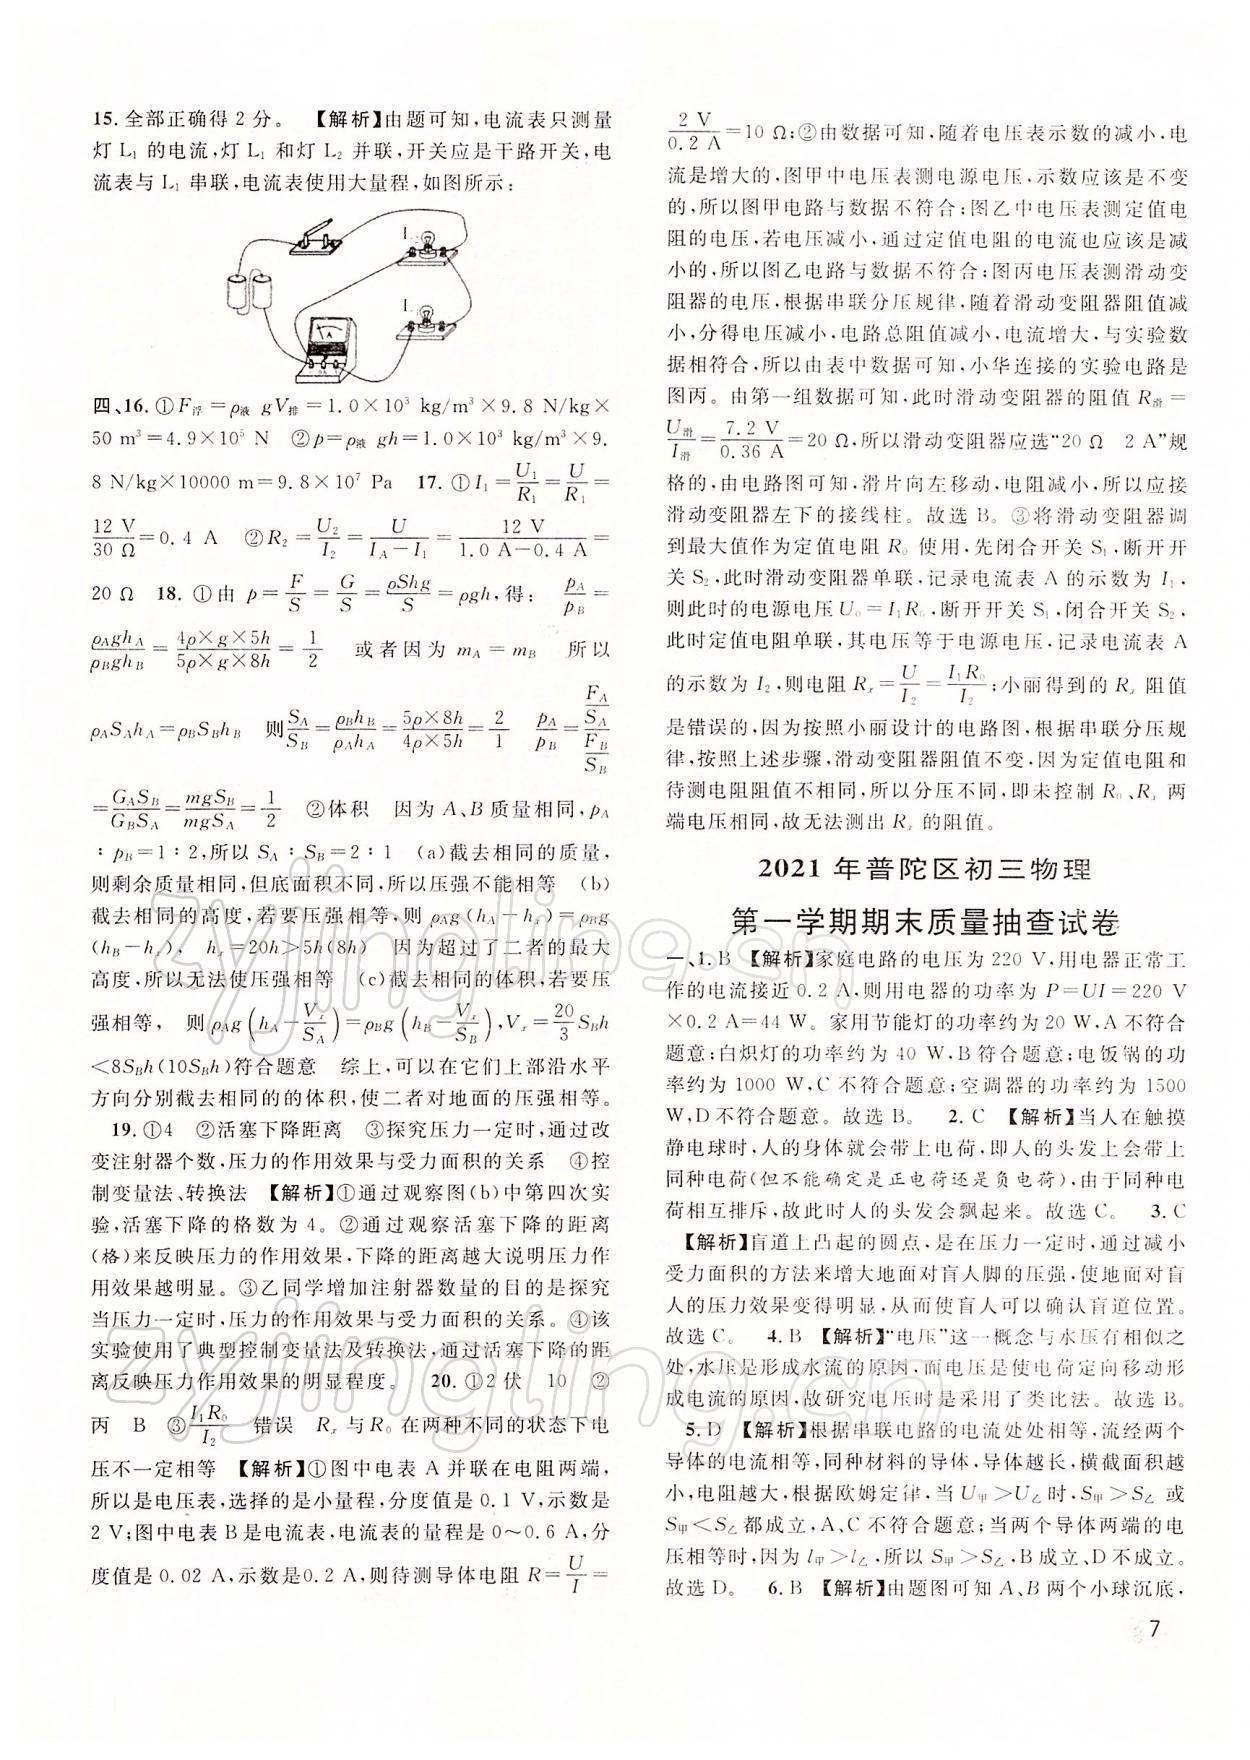 15. 全部正确得 2 分。 【解析】由题可知,电流表只测量
灯 L₁ 的电流,灯 L₁ 和灯 L₂ 并联,开关应是干路开关,电
流表与 L₁ 串联,电流表使用大量程,如图所示:
L
L
A
四、16. ①F浮=ρ液 gV排=1.0×10³ kg/m³×9.8 N/kg×
50 m³=4.9×10⁵ N ②p=ρ液 gh=1.0×10³ kg/m³×9.
8 N/kg×10000 m=9.8×10⁷ Pa 17. ①I₁=U₁/R₁=U/R₁=
12 V/30 Ω=0.4 A ②R₂=U₂/I₂=U/(I_A−I₁)=12 V/(1.0 A−0.4 A)=
20 Ω 18. ①由 p=F/S=G/S=ρShg/S=ρgh,得: p_A/p_B=
ρ_A gh_A/ρ_B gh_B=4ρ×g×5h/5ρ×g×8h=1/2 或者因为 m_A=m_B 所以
ρ_A S_A h_A=ρ_B S_B h_B 则S_A/S_B=ρ_B h_B/ρ_A h_A=5ρ×8h/4ρ×5h=2/1 p_A/p_B=(F_A/S_A)/(F_B/S_B)
=G_A S_B/G_B S_A=mgS_B/mgS_A=1/2 ②体积 因为 A、B 质量相同,p_A
∶p_B=1∶2,所以 S_A∶S_B=2∶1 (a)截去相同的质量,
则剩余质量相同,但底面积不同,所以压强不能相等 (b)
截去相同的高度,若要压强相等,则 ρ_A g(h_A−h_x)=ρ_B g
(h_B−h_x), h_x=20h>5h(8h) 因为超过了二者的最大
高度,所以无法使压强相等 (c)截去相同的体积,若要压
强相等, 则 ρ_A g(h_A−V_x/S_A)=ρ_B g(h_B−V_x/S_B),V_x=20/3 S_B h
<8S_B h(10S_B h)符合题意 综上,可以在它们上部沿水平
方向分别截去相同的的体积,使二者对地面的压强相等。
19. ①4 ②活塞下降距离 ③探究压力一定时,通过改
变注射器个数,压力的作用效果与受力面积的关系 ④控
制变量法、转换法 【解析】①通过观察图(b)中第四次实
验,活塞下降的格数为 4。②通过观察活塞下降的距离
(格)来反映压力的作用效果,下降的距离越大说明压力作
用效果越明显。③乙同学增加注射器数量的目的是探究
当压力一定时,压力的作用效果与受力面积的关系。④该
实验使用了典型控制变量法及转换法,通过活塞下降的距
离反映压力作用效果的明显程度。 20. ①2伏 10 ②
丙 B ③I₁R₀/I₂ 错误 Rₓ 与 R₀ 在两种不同的状态下电
压不一定相等 【解析】①图中电表 A 并联在电阻两端,
所以是电压表,选择的是小量程,分度值是 0.1 V,示数是
2 V;图中电表 B 是电流表,电流表的量程是 0～0.6 A,分
度值是 0.02 A,示数是0.2 A,则待测导体电阻 R=U/I=
2 V/0.2 A=10 Ω;②由数据可知,随着电压表示数的减小,电
流是增大的,图甲中电压表测电源电压,示数应该是不变
的,所以图甲电路与数据不符合;图乙中电压表测定值电
阻的电压,若电压减小,通过定值电阻的电流也应该是减
小的,所以图乙电路与数据不符合;图丙电压表测滑动变
阻器的电压,根据串联分压规律,随着滑动变阻器阻值减
小,分得电压减小,电路总阻值减小,电流增大,与实验数
据相符合,所以由表中数据可知,小华连接的实验电路是
图丙。由第一组数据可知,此时滑动变阻器的阻值 R滑=
U滑/I滑=7.2 V/0.36 A=20 Ω,所以滑动变阻器应选“20 Ω 2 A”规
格的,由电路图可知,滑片向左移动,电阻减小,所以应接
滑动变阻器左下的接线柱。故选 B。③将滑动变阻器调
到最大值作为定值电阻 R₀ 使用,先闭合开关 S₁,断开开
关 S₂,此时滑动变阻器单联,记录电流表 A 的示数为 I₁,
则此时的电源电压 U₀=I₁R₀,断开开关 S₁,闭合开关 S₂,
此时定值电阻单联,其电压等于电源电压,记录电流表 A
的示数为 I₂,则电阻 Rₓ=U/I₂=I₁R₀/I₂;小丽得到的 Rₓ 阻值
是错误的,因为按照小丽设计的电路图,根据串联分压规
律,按照上述步骤,滑动变阻器阻值不变,因为定值电阻和
待测电阻阻值不相同,所以分压不同,即未控制 R₀、Rₓ 两
端电压相同,故无法测出 Rₓ 的阻值。
2021 年普陀区初三物理
第一学期期末质量抽查试卷
一、1. B 【解析】家庭电路的电压为 220 V,用电器正常工
作的电流接近 0.2 A,则用电器的功率为 P=UI=220 V
×0.2 A=44 W。家用节能灯的功率约为 20 W,A 不符合
题意;白炽灯的功率约为 40 W,B 符合题意;电饭锅的功
率约为 1000 W,C 不符合题意;空调器的功率约为 1500
W,D 不符合题意。故选 B。 2. C 【解析】当人在触摸
静电球时,人的身体就会带上电荷,即人的头发也会带上
同种电荷(但不能确定是正电荷还是负电荷),由于同种电
荷相互排斥,故此时人的头发会飘起来。故选 C。 3. C
【解析】盲道上凸起的圆点,是在压力一定时,通过减小
受力面积的方法来增大地面对盲人脚的压强,使地面对盲
人的压力效果变得明显,从而使盲人可以确认盲道位置。
故选 C。 4. B 【解析】“电压”这一概念与水压有相似之
处,水压是形成水流的原因,而电压是使电荷定向移动形
成电流的原因,故研究电压时是采用了类比法。故选 B。
5. D 【解析】根据串联电路的电流处处相等,流经两个
导体的电流相等,同种材料的导体,导体越长,横截面积越
小,电阻越大,根据欧姆定律,当 U甲>U乙 时,S甲>S乙 或
S甲<S乙 都成立,A、C 不符合题意;当两个导体两端的电
压相等时,因为 l甲>l乙,所以 S甲>S乙,B 成立、D 不成立。
故选 D。 6. B 【解析】由题图可知 A、B 两个小球沉底,
7
zyjingling.cn
zyjingling.cn